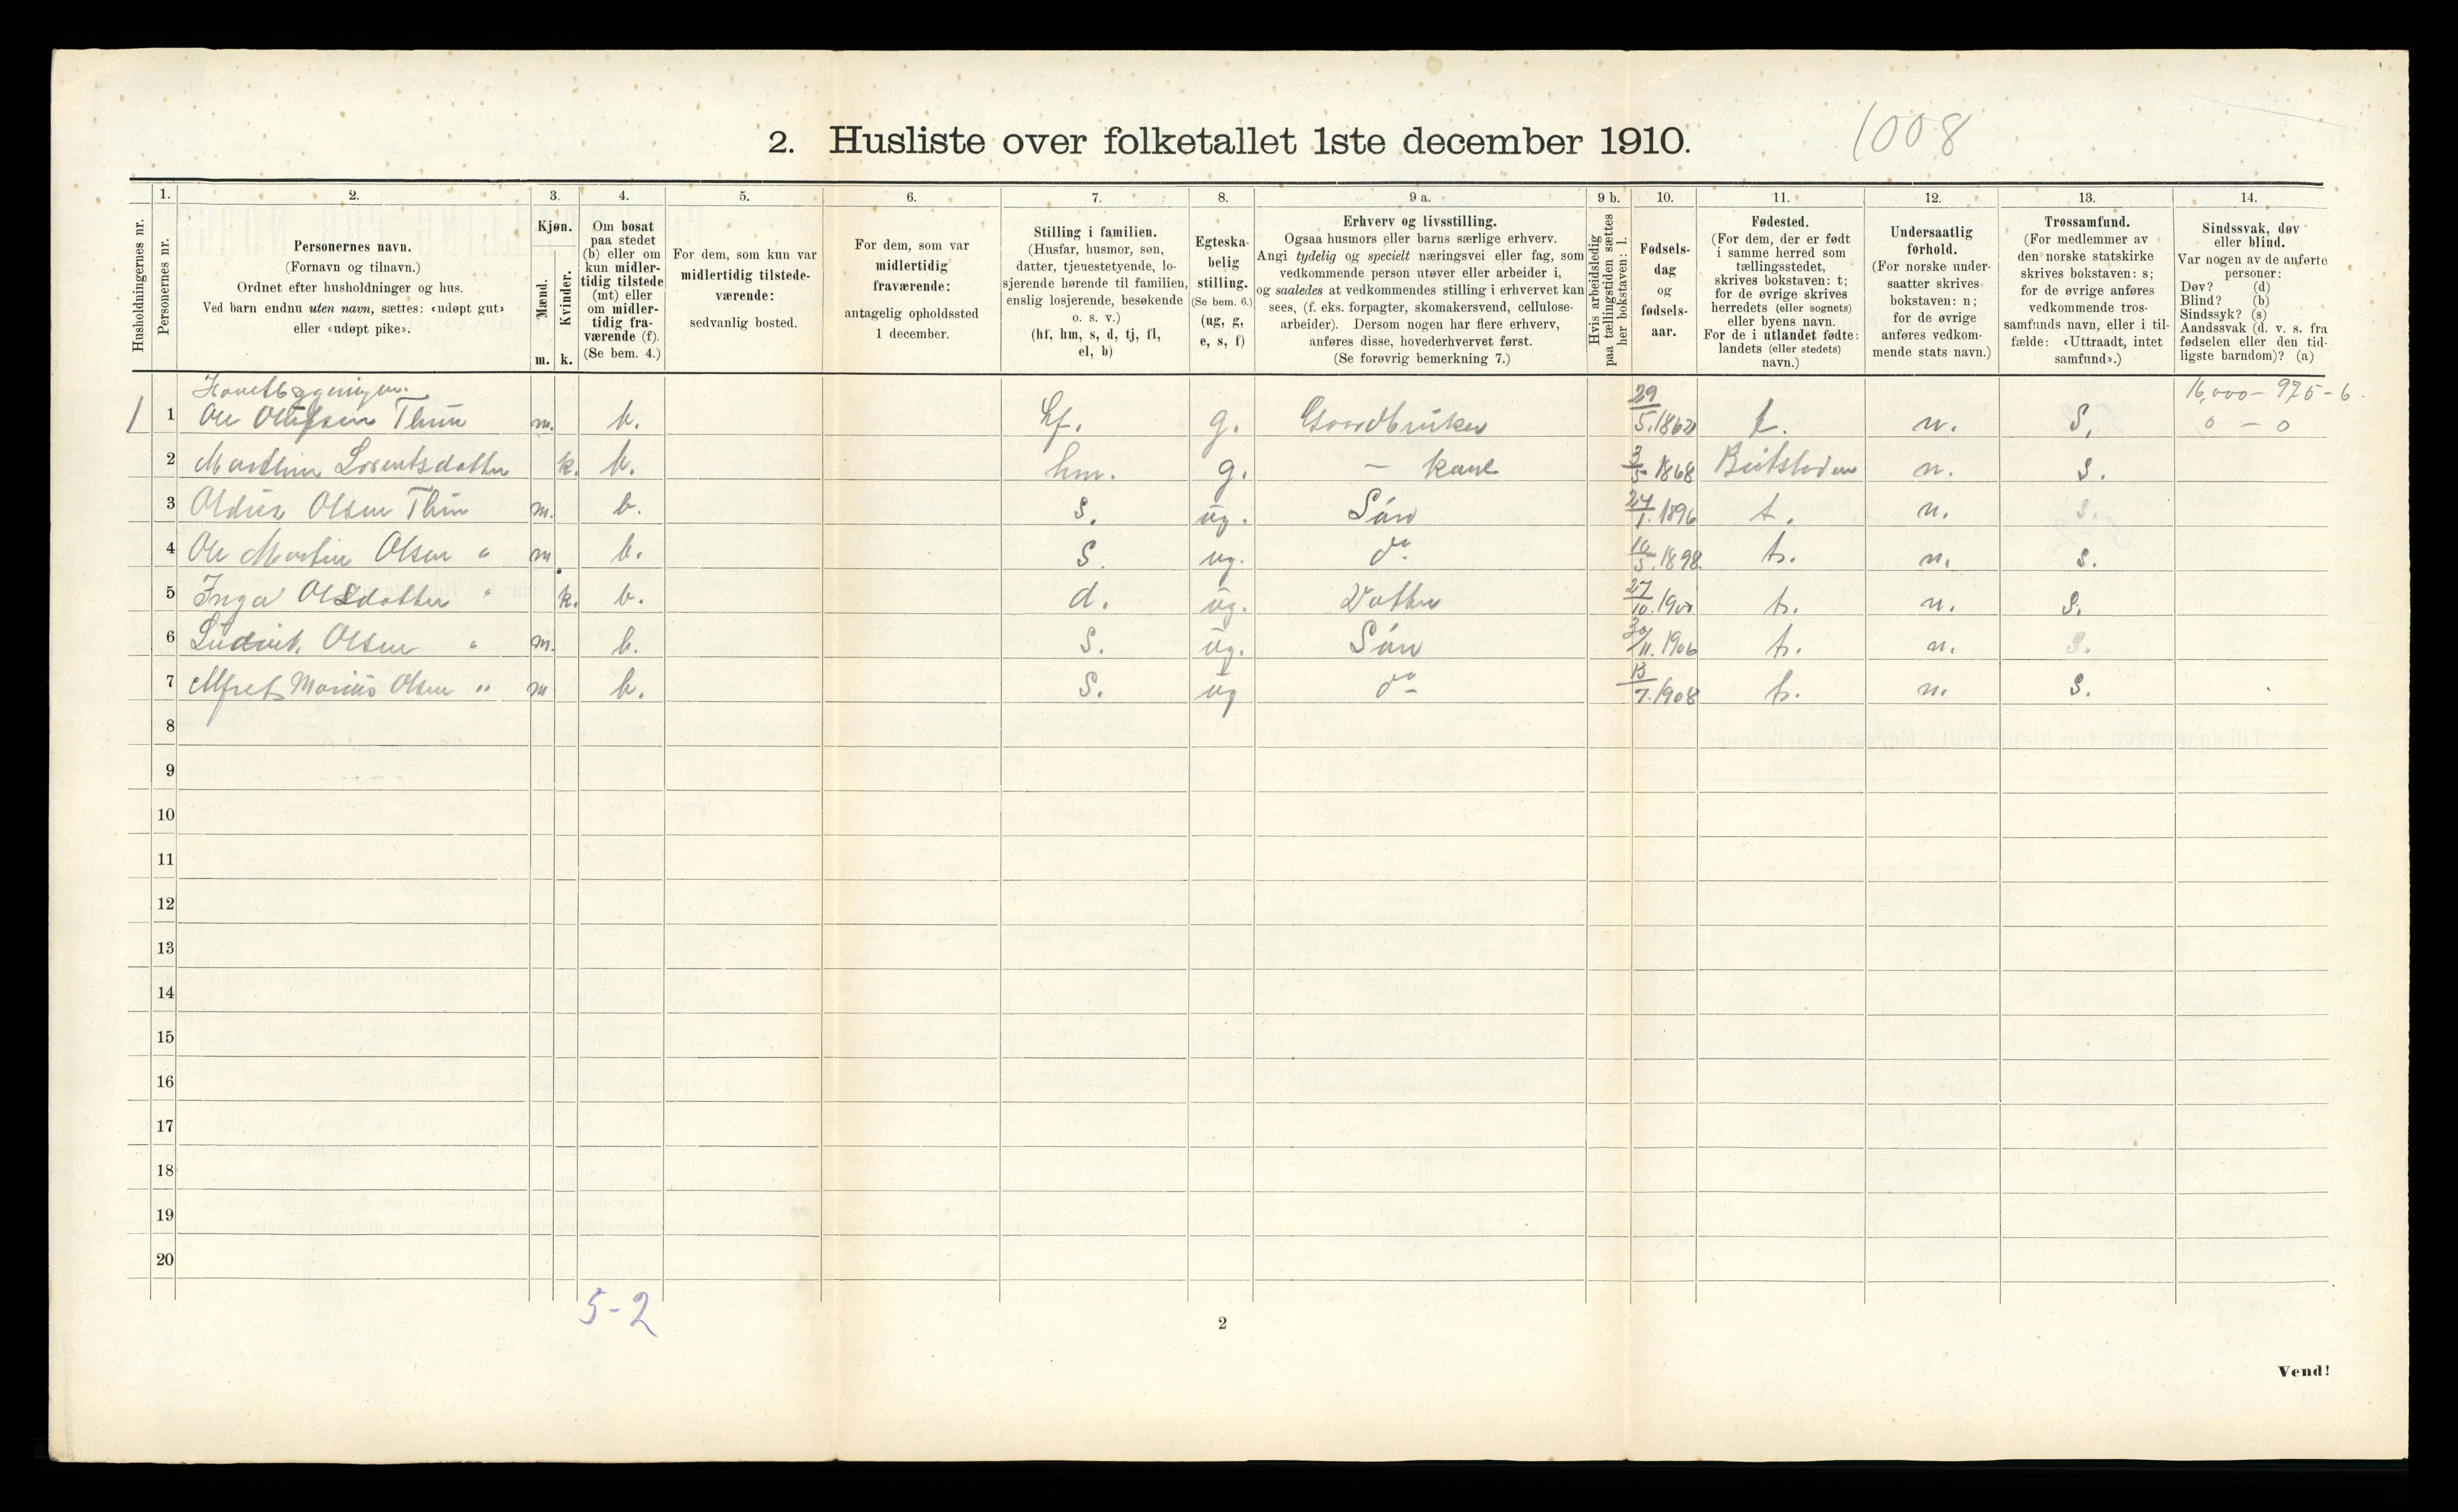 2. Husliste over folketallet 1ste december 1910.
1008
Husholdningernes nr.
1.
Personernes nr.
2.
Personernes navn.
(Fornavn og tilnavn.)
Ordnet efter husholdninger og hus.
Ved barn endnu uten navn, sættes: «udøpt gut»
eller «udøpt pike».
3.
Kjøn.
Mænd.
m.
Kvinder.
k.
4.
Om bosat
paa stedet
(b) eller om
kun midler-
tidig tilstede
(mt) eller
om midler-
tidig fra-
værende (f).
(Se bem. 4.)
5.
For dem, som kun var
midlertidig tilstede-
værende:
sedvanlig bosted.
6.
For dem, som var
midlertidig
fraværende:
antagelig opholdssted
1 december.
7.
Stilling i familien.
(Husfar, husmor, søn,
datter, tjenestetyende, lo-
sjerende hørende til familien,
enslig losjerende, besøkende
o. s. v.)
(hf, hm, s, d, tj, fl,
el, b)
8.
Egteska-
belig
stilling.
(Se bem. 6.)
(ug, g,
e, s, f)
9 a.
Erhverv og livsstilling.
Ogsaa husmors eller barns særlige erhverv.
Angi tydelig og specielt næringsvei eller fag, som
vedkommende person utøver eller arbeider i,
og saaledes at vedkommendes stilling i erhvervet kan
sees, (f. eks. forpagter, skomakersvend, cellulose-
arbeider). Dersom nogen har flere erhverv,
anføres disse, hovederhvervet først.
(Se forøvrig bemerkning 7.)
9 b.
Hvis arbeidsledig
paa tællingstiden sættes
her bokstaven: l.
10.
Fødsels-
dag
og
fødsels-
aar.
11.
Fødested.
(For dem, der er født
i samme herred som
tællingsstedet,
skrives bokstaven: t;
for de øvrige skrives
herredets (eller sognets)
eller byens navn.
For de i utlandet fødte:
landets (eller stedets)
navn.)
12.
Undersaatlig
forhold.
(For norske under-
saatter skrives
bokstaven: n;
for de øvrige
anføres vedkom-
mende stats navn.)
13.
Trossamfund.
(For medlemmer av
den norske statskirke
skrives bokstaven: s;
for de øvrige anføres
vedkommende tros-
samfunds navn, eller i til-
fælde: «Uttraadt, intet
samfund».)
14.
Sindssvak, døv
eller blind.
Var nogen av de anførte
personer:
Døv? (d)
Blind? (b)
Sindssyk? (s)
Aandssvak (d. v. s. fra
fødselen eller den tid-
ligste barndom)? (a)
Hovetbygningen. 16,000 – 975 – 6.
1 1 Ole Thun m. b. hf. g. Gaardbruker 29/5.1862 t. n. S. 0 – 0
2 Marthine Lorentsdatter k. b. hm. g. – kone 3/5 1868 Beitstaden n. S.
3 Oldus Olsen Thun m. b. S. ug. Sön 1896 t. n. S.
4 Ole Martin Olsen " m b. S. ug. do 10/5.1898. t. n. S.
5 Inga Olsdatter " k. b. d. ug. Datter 27/10.1900 t. n. S.
6 Ludvik Olsen " m. b. S. ug. Sön 30/11.1906 t. n. S.
7 Alfret Marius Olsen " m b. S. ug do 13/7.1908 t. n. S.
8
9
10
11
12
13
14
15
16
17
18
19
20
5-2
2
Vend!